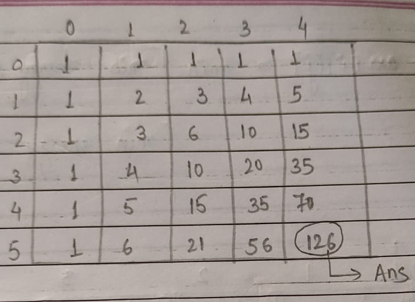 0 1 2 3 4
0 1 1 1 1 1
1 1 2 3 4 5
2 1 3 6 10 15
3 1 4 10 20 35
4 1 5 15 35 70
5 1 6 21 56 126
Ans